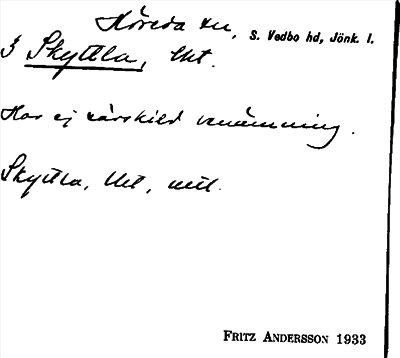 Höreda sn, S. Vedbo hd, Jönk. l.
3 Skyttla, lht.
Har ej särskild benämning.
Skyttla, lht, mtl.
FRITZ ANDERSSON 1933